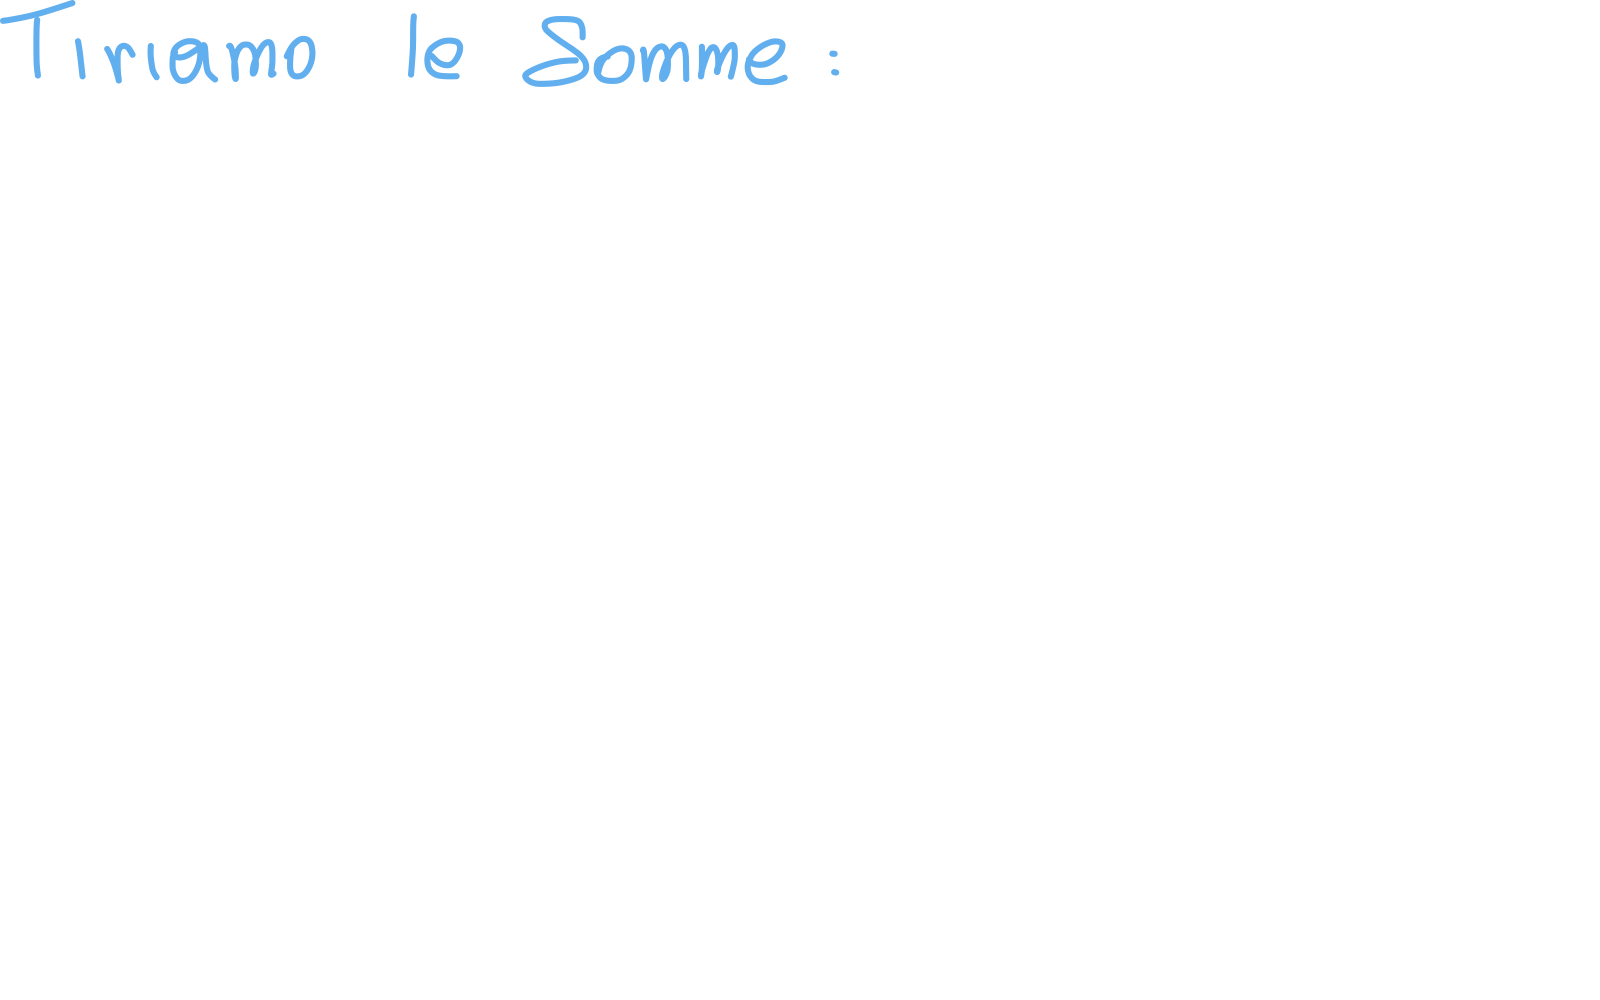 Tiriamo le Somme :